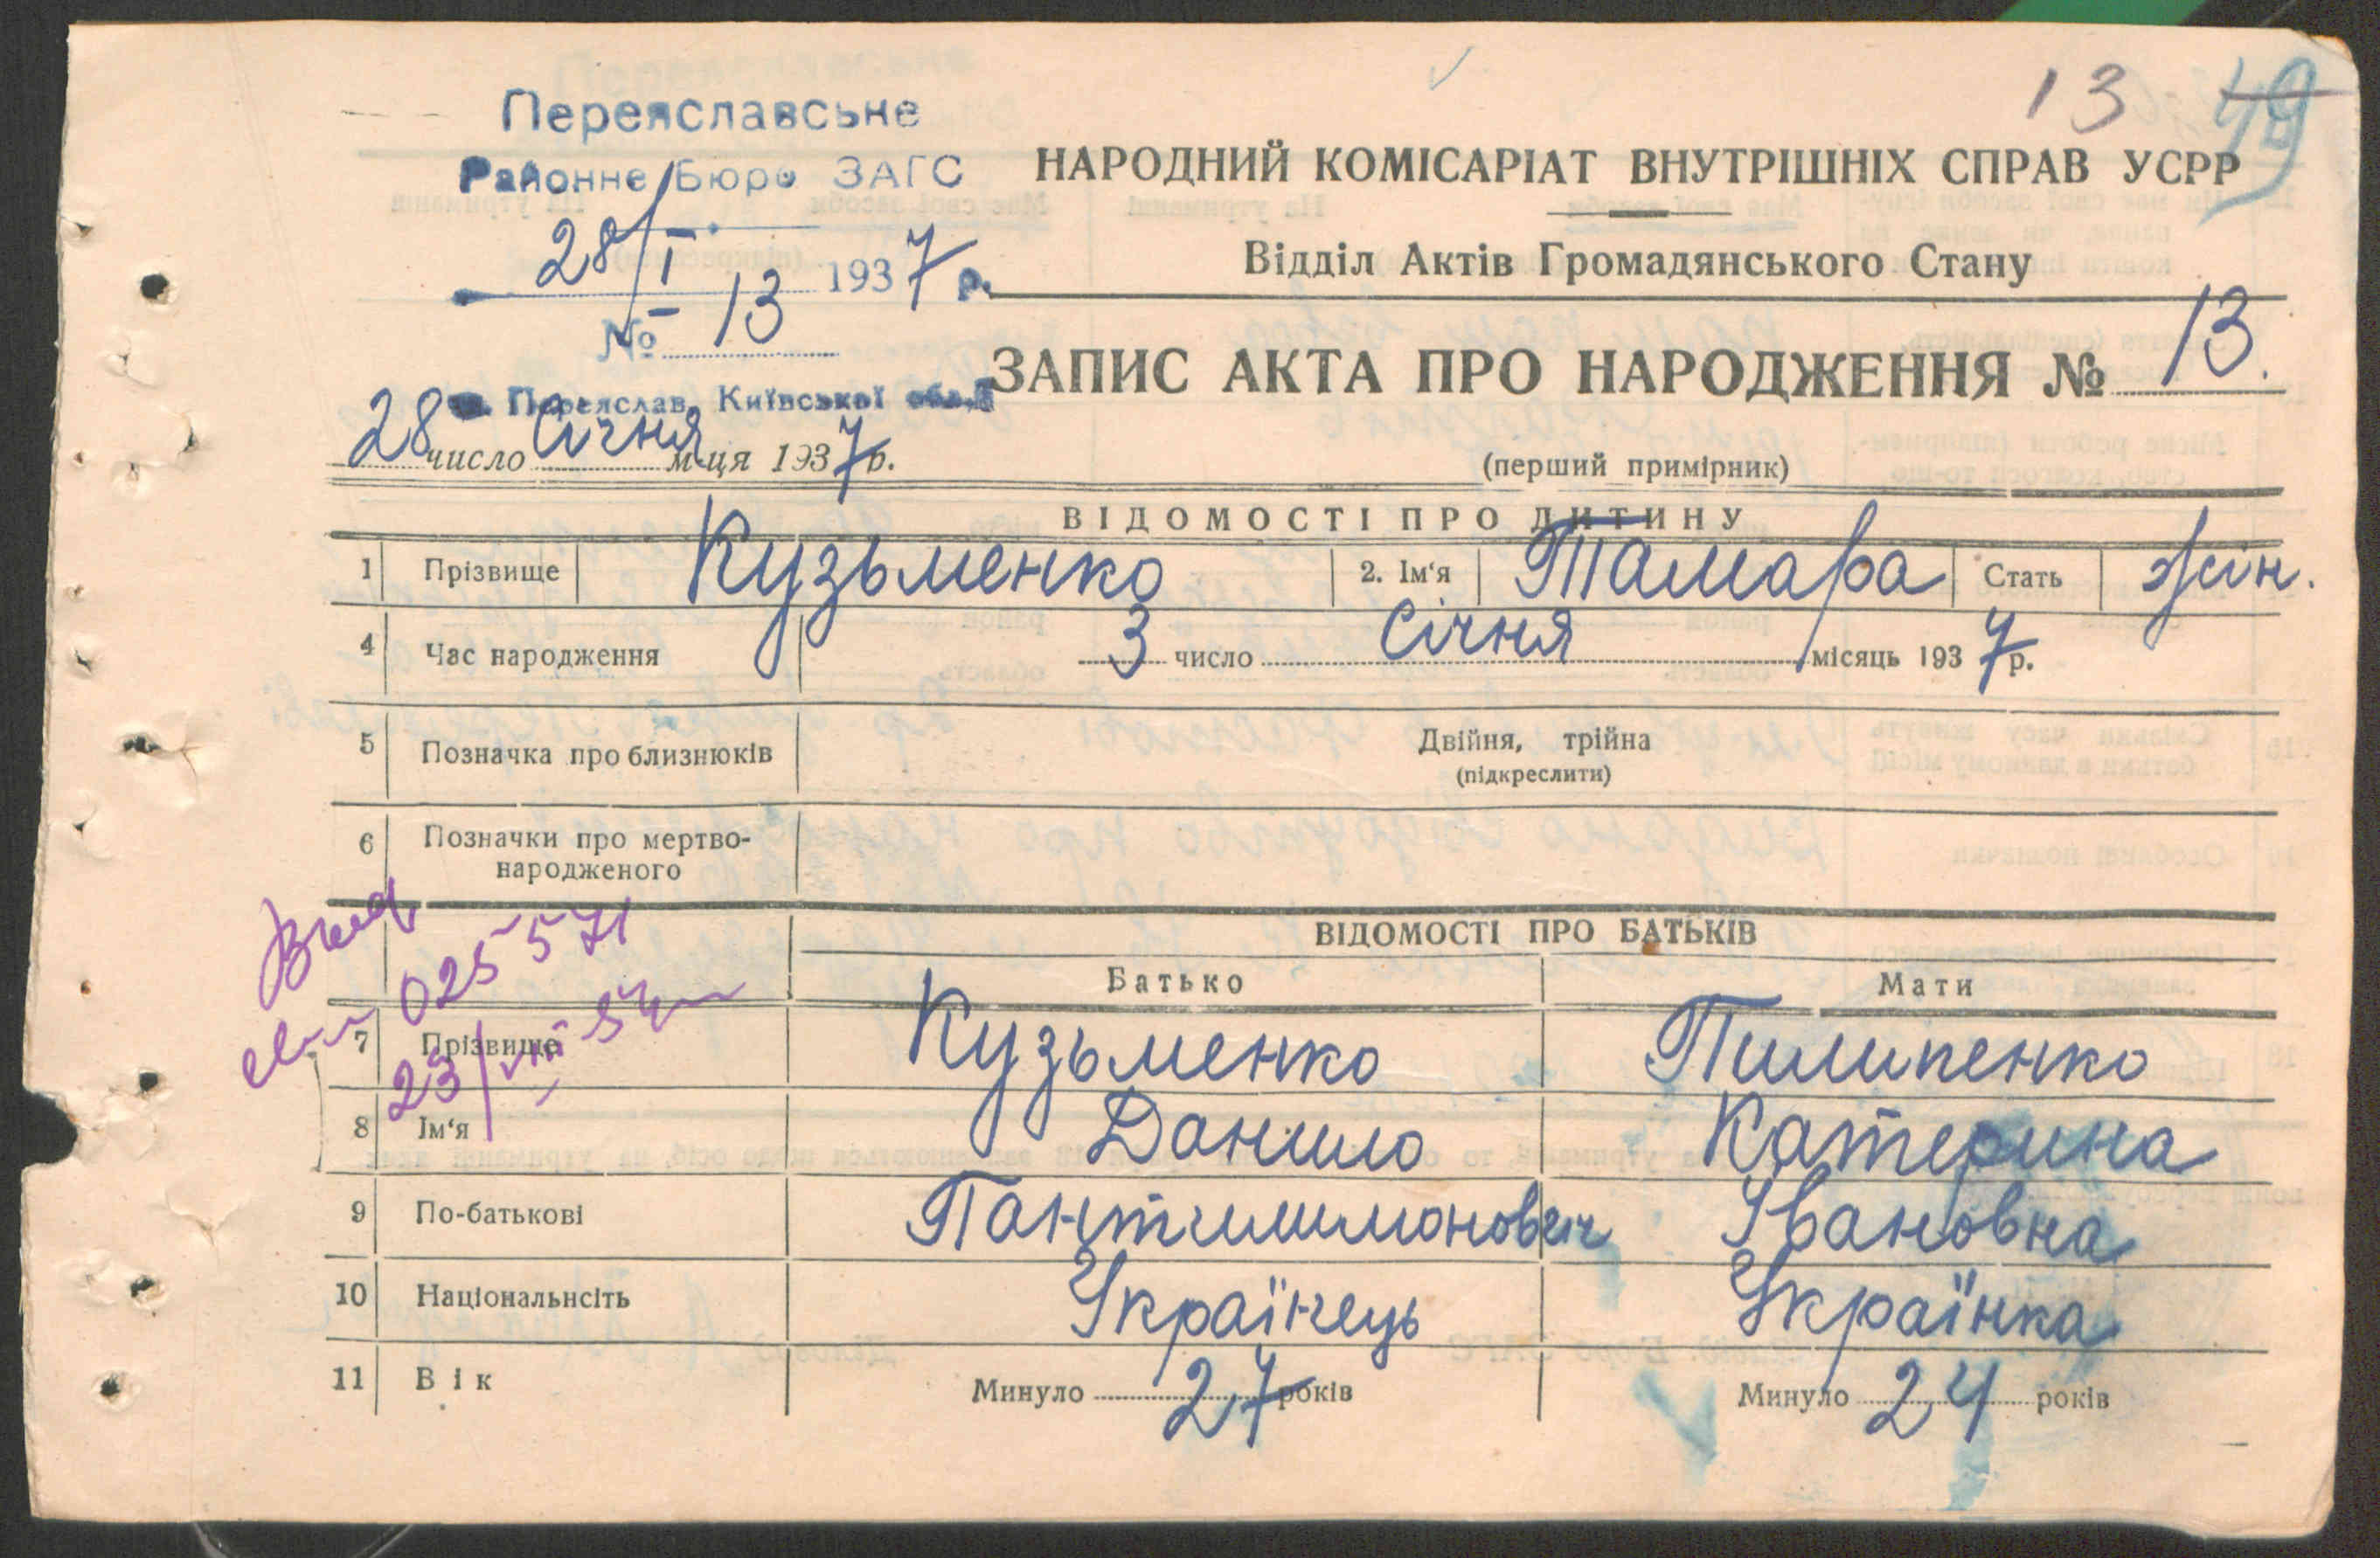 13 49
Переяславське
Районне Бюро ЗАГС
28/I 1937 р.
№ 13
м. Переяслав, Київської обл.
НАРОДНИЙ КОМІСАРІАТ ВНУТРІШНІХ СПРАВ УСРР
Відділ Актів Громадянського Стану
ЗАПИС АКТА ПРО НАРОДЖЕННЯ № 13.
28 число Січня м-ця 1937 р.
(перший примірник)
ВІДОМОСТІ ПРО ДИТИНУ
1 Прізвище Кузьменко 2. Ім‘я Тамара Стать жін.
4 Час народження 3 число Січня місяць 1937 р.
5 Позначка про близнюків Двійня, трійна
(підкреслити)
6 Позначки про мертво-
народженого
ВІДОМОСТІ ПРО БАТЬКІВ
Батько Мати
025571
23/VIII 54
7 Прізвище Кузьменко Пилипенко
8 Ім‘я Данило Катерина
9 По-батькові Пантилимонович Івановна
10 Національнсіть Українець Українка
11 Вік Минуло 27 років Минуло 24 років